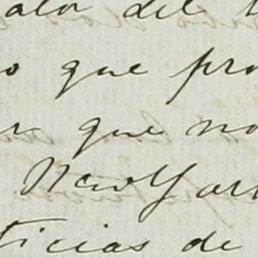 ator del
o que pro
que no
New York
ticias de